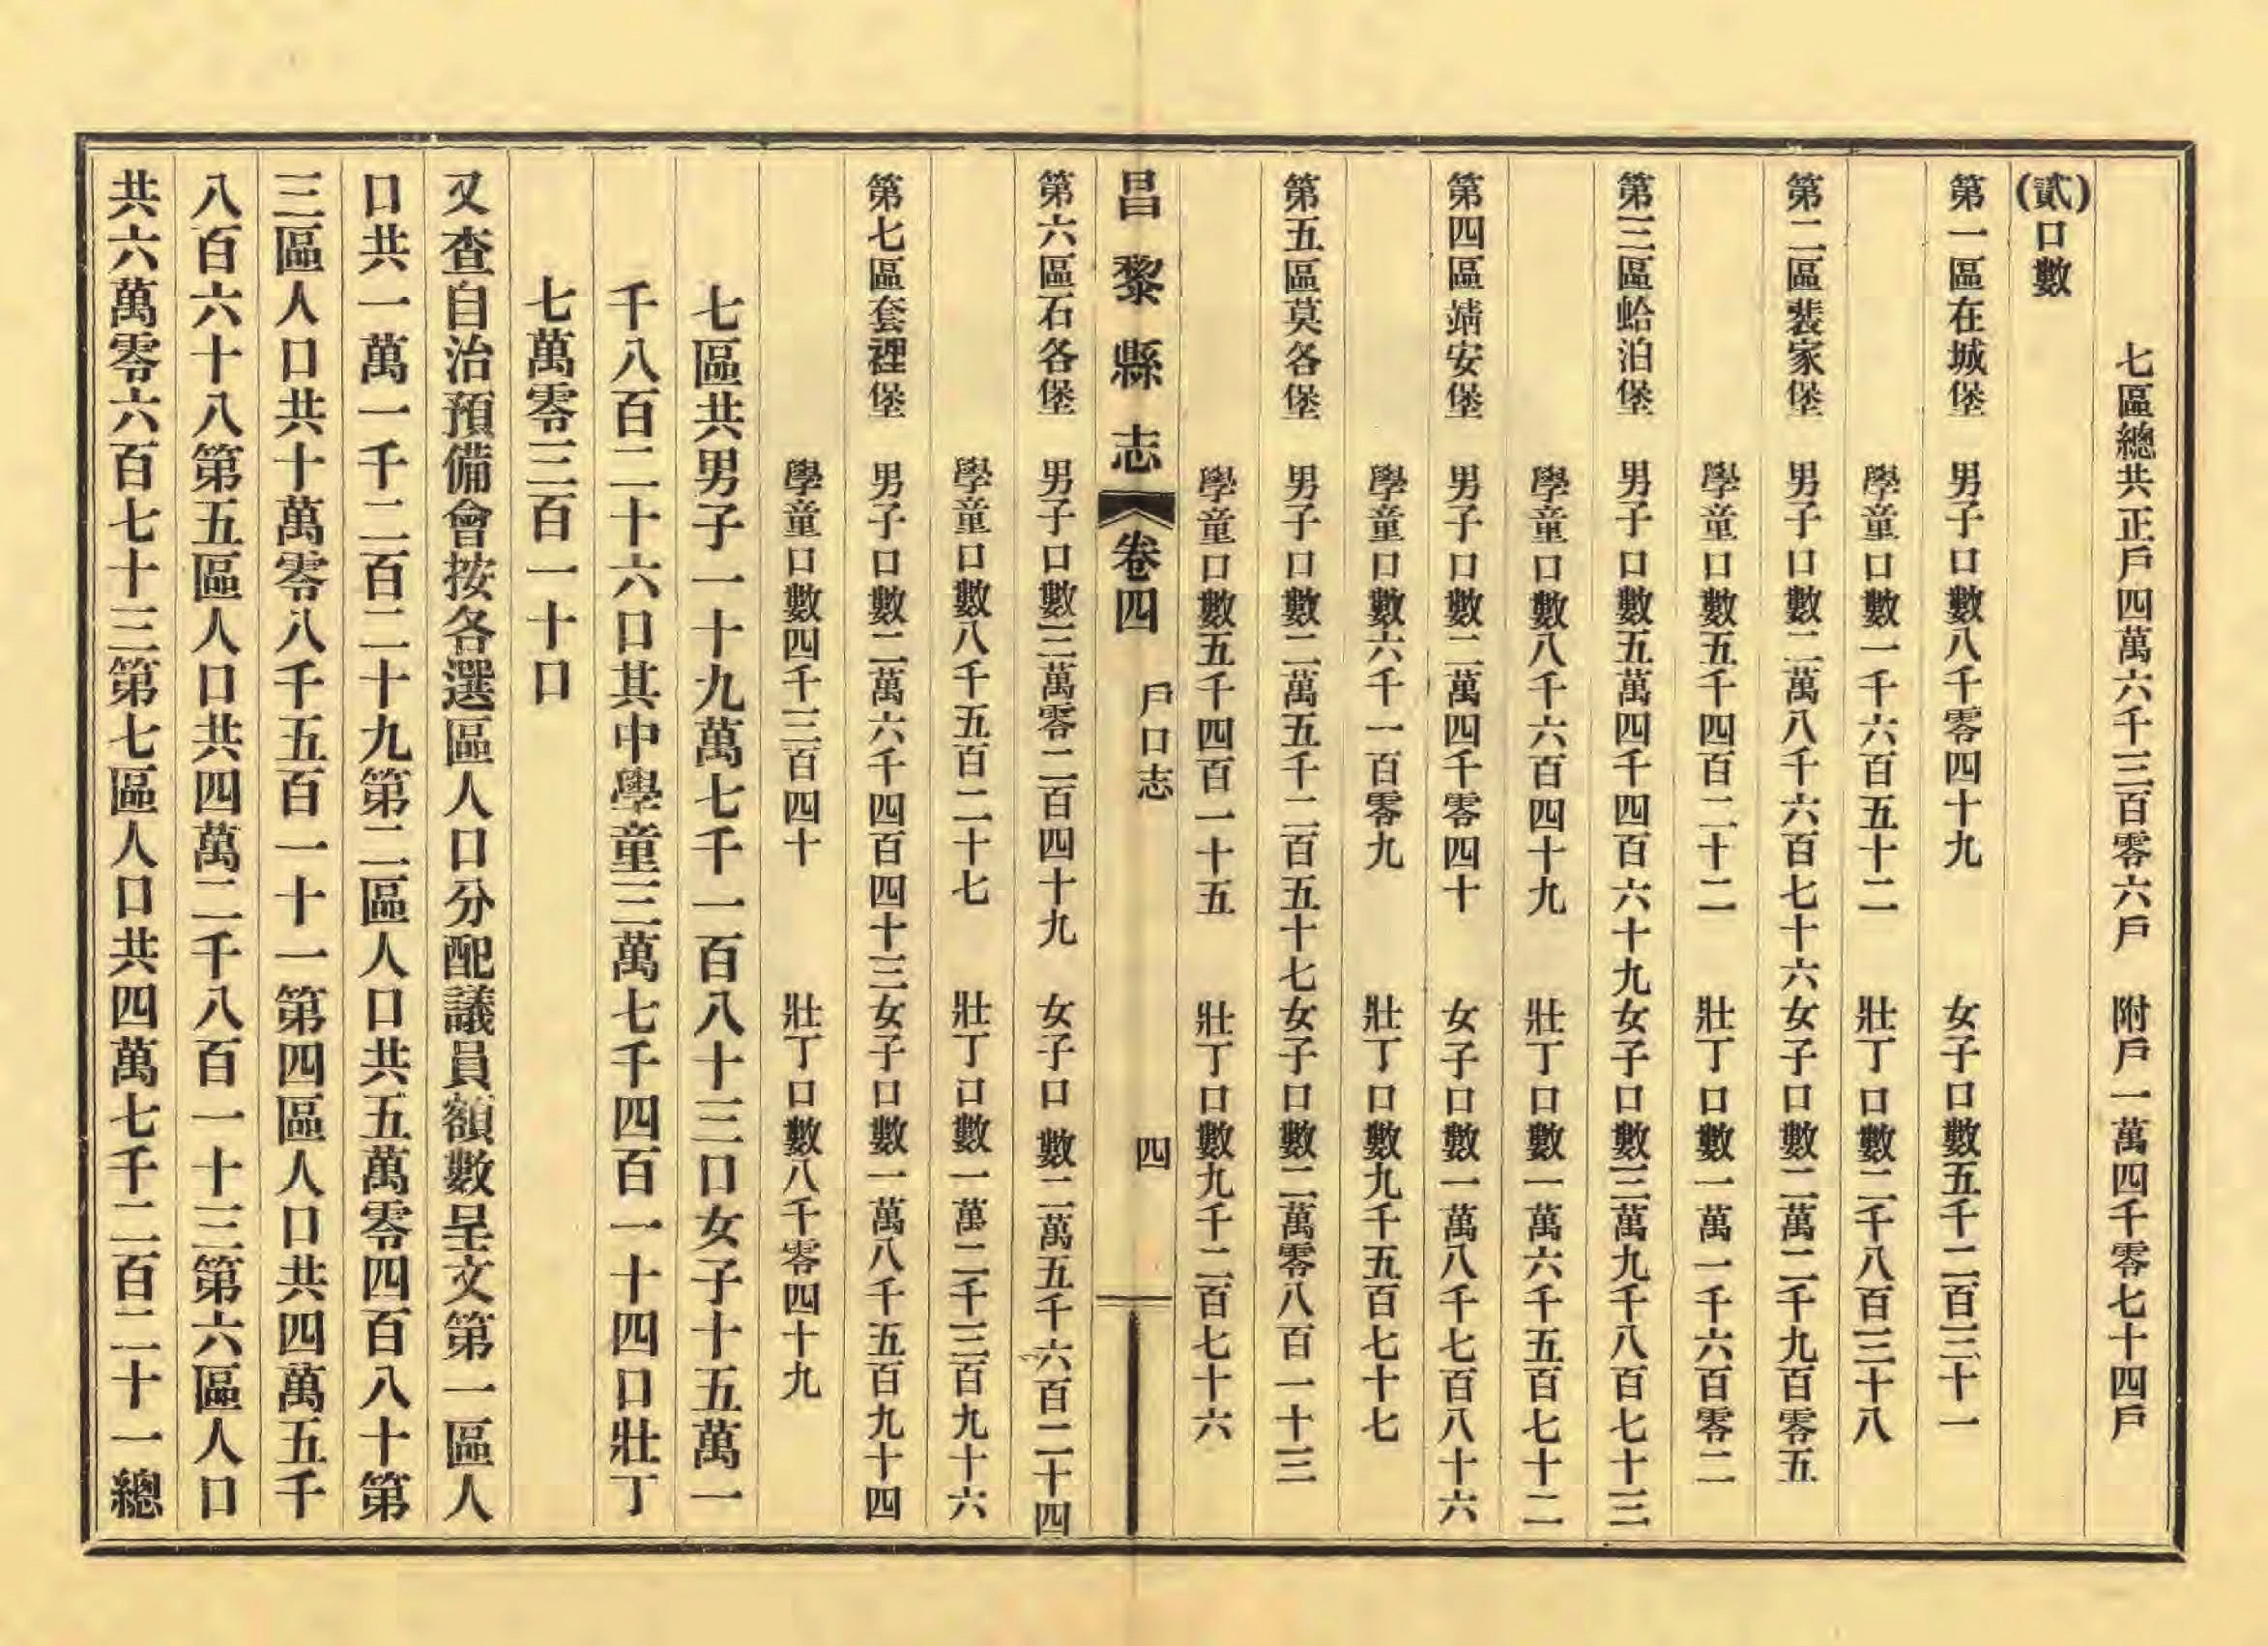 七區總共正戶四萬六千三百零六戶　附戶一萬四千零七十四戶
(貳)口數
第一區在城堡　男子口數八千零四十九　女子口數五千二百三十一
學童口數一千六百五十二　壯丁口數二千八百三十八
第二區裴家堡　男子口數二萬八千六百七十六女子口數二萬二千九百零五
學童口數五千四百二十二　壯丁口數一萬一千六百零二
第三區蛤泊堡　男子口數五萬四千四百六十九女子口數三萬九千八百七十三
學童口數八千六百四十九　壯丁口數一萬六千五百七十二
第四區靖安堡　男子口數二萬四千零四十　女子口數一萬八千七百八十六
學童口數六千一百零九　壯丁口數九千五百七十七
第五區莫各堡　男子口數二萬五千二百五十七女子口數二萬零八百一十三
學童口數五千四百一十五　壯丁口數九千二百七十六
昌黎縣志　卷四　戶口志　四
第六區石各堡　男子口數三萬零二百四十九　女子口數二萬五千六百二十四
學童口數八千五百二十七　壯丁口數一萬二千三百九十六
第七區套裡堡　男子口數二萬六千四百四十三女子口數一萬八千五百九十四
學童口數四千三百四十　壯丁口數八千零四十九
七區共男子一十九萬七千一百八十三口女子十五萬一
千八百二十六口其中學童三萬七千四百一十四口壯丁
七萬零三百一十口
又查自治預備會按各選區人口分配議員額數呈文第一區人
口共一萬一千二百二十九第二區人口共五萬零四百八十第
三區人口共十萬零八千五百一十一第四區人口共四萬五千
八百六十八第五區人口共四萬二千八百一十三第六區人口
共六萬零六百七十三第七區人口共四萬七千二百二十一總